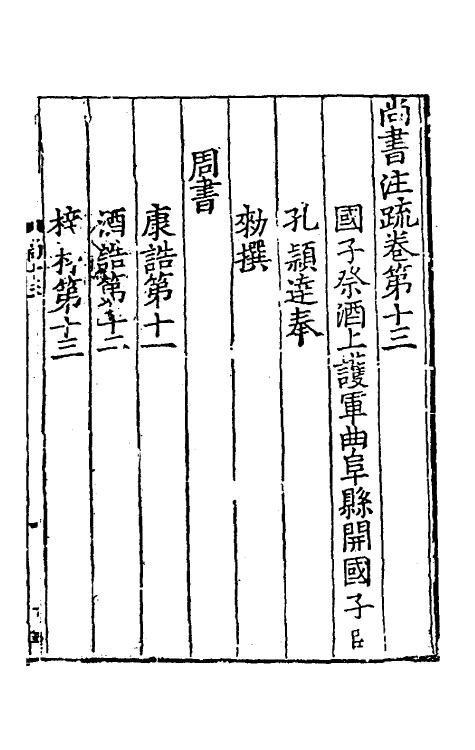 尚書注疏卷第十三
國子祭酒上護軍曲阜縣開國子臣
孔穎達奉
勑撰
周書
康誥第十一
酒誥第十二
梓材第十三